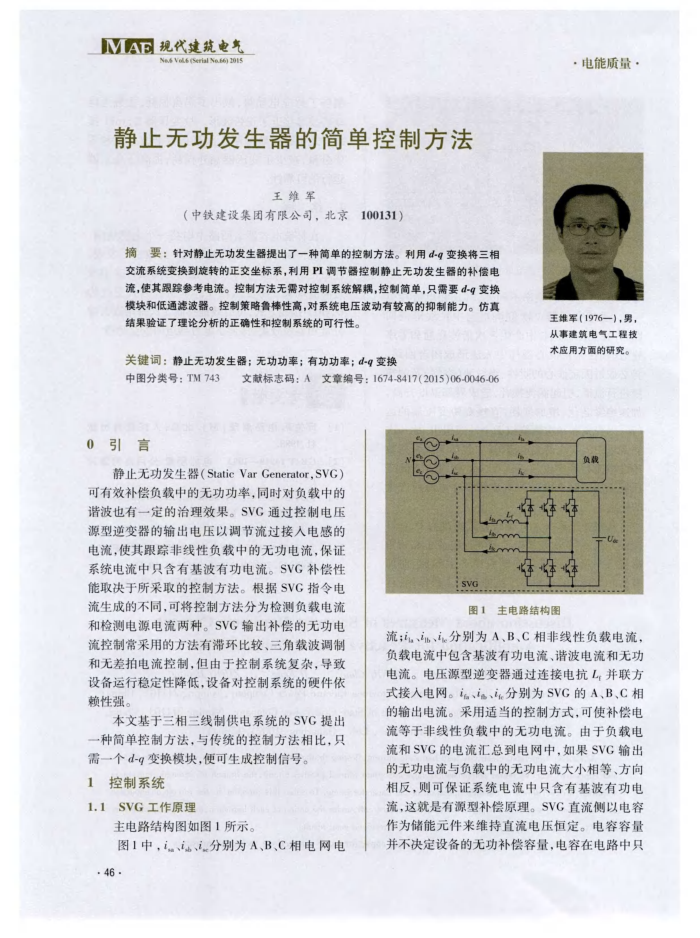 MAE 现代建筑电气
No.6 Vol.6 (Serial No.66) 2015
·电能质量·
静止无功发生器的简单控制方法
王维军
(中铁建设集团有限公司,北京 100131)
摘 要:针对静止无功发生器提出了一种简单的控制方法。利用 d-q 变换将三相
交流系统变换到旋转的正交坐标系,利用 PI 调节器控制静止无功发生器的补偿电
流,使其跟踪参考电流。控制方法无需对控制系统解耦,控制简单,只需要 d-q 变换
模块和低通滤波器。控制策略鲁棒性高,对系统电压波动有较高的抑制能力。仿真
结果验证了理论分析的正确性和控制系统的可行性。
关键词:静止无功发生器;无功功率;有功功率;d-q 变换
中图分类号:TM 743 文献标志码:A 文章编号:1674-8417(2015)06-0046-06
王维军(1976—),男,
从事建筑电气工程技
术应用方面的研究。
0 引 言
静止无功发生器(Static Var Generator,SVG)
可有效补偿负载中的无功功率,同时对负载中的
谐波也有一定的治理效果。SVG 通过控制电压
源型逆变器的输出电压以调节流过接入电感的
电流,使其跟踪非线性负载中的无功电流,保证
系统电流中只含有基波有功电流。SVG 补偿性
能取决于所采取的控制方法。根据 SVG 指令电
流生成的不同,可将控制方法分为检测负载电流
和检测电源电流两种。SVG 输出补偿的无功电
流控制常采用的方法有滞环比较、三角载波调制
和无差拍电流控制,但由于控制系统复杂,导致
设备运行稳定性降低,设备对控制系统的硬件依
赖性强。
本文基于三相三线制供电系统的 SVG 提出
一种简单控制方法,与传统的控制方法相比,只
需一个 d-q 变换模块,便可生成控制信号。
1 控制系统
1.1 SVG 工作原理
主电路结构图如图 1 所示。
图 1 中,isa、isb、isc分别为 A、B、C 相电网电
ea isa ila
N eb isb ilb 负载
ec isc ilc
ifa Lf
ifb
ifc
Udc
SVG
图 1 主电路结构图
流;ila、ilb、ilc分别为 A、B、C 相非线性负载电流,
负载电流中包含基波有功电流、谐波电流和无功
电流。电压源型逆变器通过连接电抗 Lf 并联方
式接入电网。ifa、ifb、ifc分别为 SVG 的 A、B、C 相
的输出电流。采用适当的控制方式,可使补偿电
流等于非线性负载中的无功电流。由于负载电
流和 SVG 的电流汇总到电网中,如果 SVG 输出
的无功电流与负载中的无功电流大小相等、方向
相反,则可保证系统电流中只含有基波有功电
流,这就是有源型补偿原理。SVG 直流侧以电容
作为储能元件来维持直流电压恒定。电容容量
并不决定设备的无功补偿容量,电容在电路中只
·46·